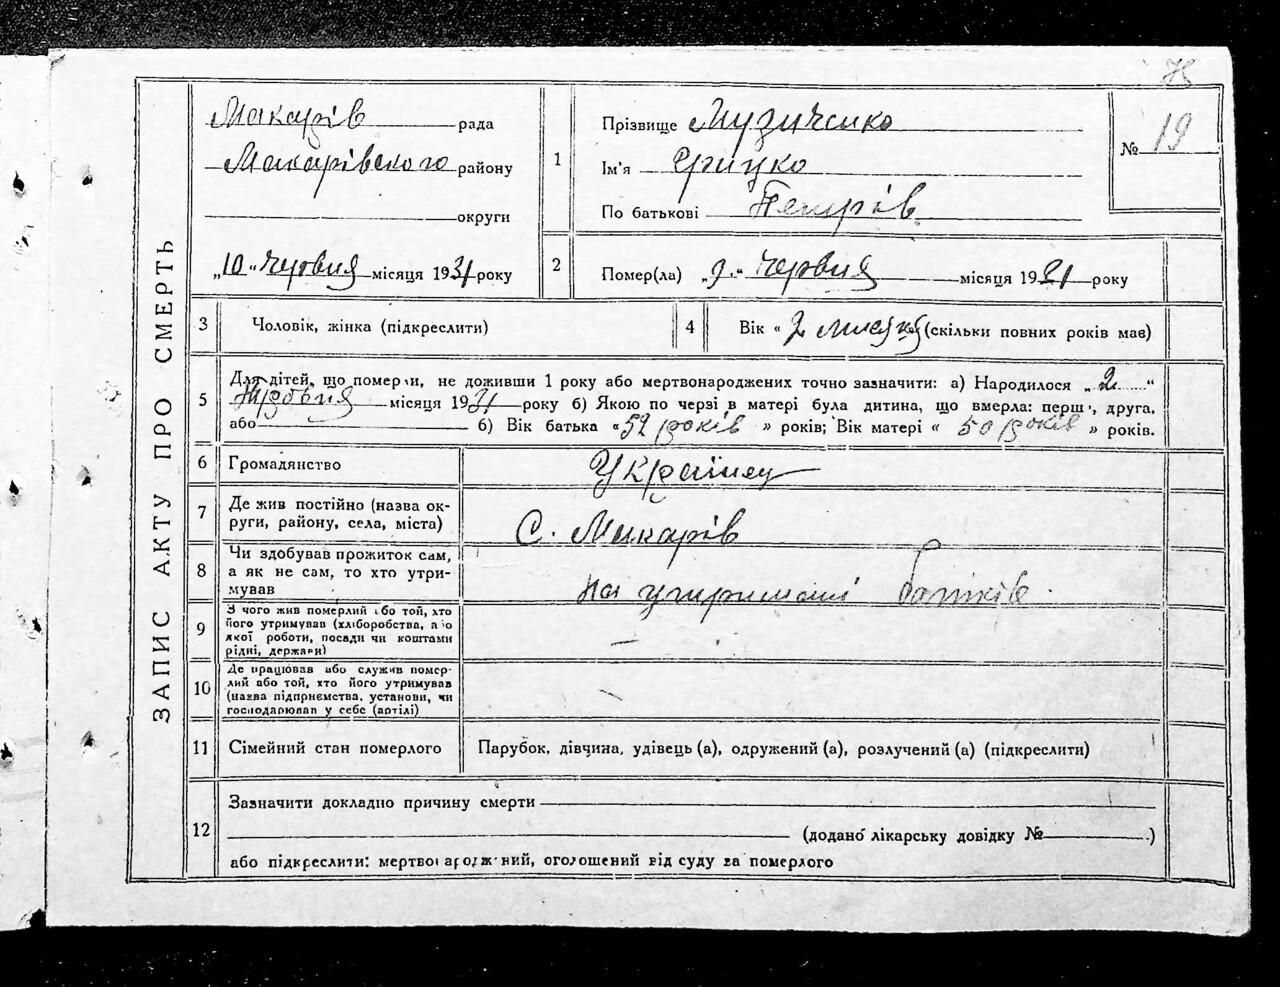 75
ЗАПИС АКТУ ПРО СМЕРТЬ
Макарів рада
Макарівского району
округи
„10“ Червня місяця 1931 року
1
Прізвище Музиченко
Ім'я Грицко
По батькові Петрів
№ 19
2
Помер(ла) „9“ Червня місяця 1931 року
3 Чоловік, жінка (підкреслити)
4 Вік « 2 (скільки повних років має)
5
Для дітей, що померли, не доживши 1 року або мертвонароджених точно зазначити: а) Народилося „2“
місяця 1931 року б) Якою по черзі в матері була дитина, що вмерла: перша, друга,
або б) Вік батька «52 років » років; Вік матері « 50 років » років.
6 Громадянство Українец
7 Де жив постійно (назва ок-
руги, району, села, міста) С. Макарів
8 Чи здобував прожиток сам,
а як не сам, то хто утри-
мував на утриманні батьків
9 З чого жив померлий або той, хто
його утримував (хліборобства, або
якої роботи, посади чи коштами
рідні, держави) —
10 Де працював або служив помер-
лий або той, хто його утримував
(назва підприємства, установи, чи
господарював у себе (артілі)
11 Сімейний стан померлого Парубок, дівчина, удівець (а), одружений (а), розлучений (а) (підкреслити)
12
Зазначити докладно причину смерти
(додано лікарську довідку № )
або підкреслити: мертвонароджений, оголошений від суду за померлого